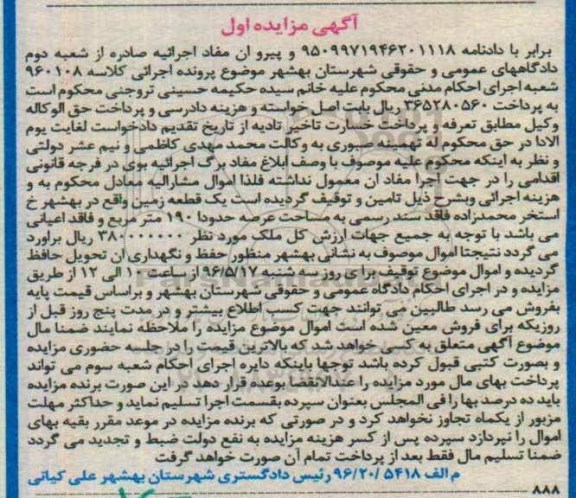 آگهی مزایده اول
برابر با دادنامه ۹۵۰۹۹۷۱۹۴۶۲۰۱۱۱۸ و پیرو ان مفاد اجرائیه صادره از شعبه دوم
دادگاههای عمومی و حقوقی شهرستان بهشهر موضوع پرونده اجرائی کلاسه ۹۶۰۱۰۸
شعبه اجرای احکام مدنی محکوم علیه خانم سیده حکیمه حسینی تروجنی محکوم است
به پرداخت ۳۶۵۲۸۰۵۶۰ ریال بابت اصل خواسته و هزینه دادرسی و پرداخت حق الوکاله
وکیل مطابق تعرفه و پرداخت خسارت تاخیر تادیه از تاریخ تقدیم دادخواست لغایت یوم
الادا در حق محکوم له تهمینه صبوری به وکالت محمد مهدی کاظمی و نیم عشر دولتی
و نظر به اینکه محکوم علیه موصوف با وصف ابلاغ مفاد برگ اجرائیه بوی در فرجه قانونی
اقدامی را در جهت اجرا مفاد آن معمول نداشته فلذا اموال مشارالیه معادل محکوم به و
هزینه اجرائی وبشرح ذیل تامین و توقیف گردیده است یک قطعه زمین واقع در بهشهر خ
استخر محمدزاده فاقد سند رسمی به مساحت عرصه حدودا ۱۹۰ متر مربع و فاقد اعیانی
می باشد با توجه به جمیع جهات ارزش کل ملک مورد نظر ۳۸۰۰۰۰۰۰۰۰ ریال براورد
می گردد نتیجتا اموال موصوف به نشانی بهشهر منظور حفظ و نگهداری آن تحویل حافظ
گردیده و اموال موضوع توقیف برای روز سه شنبه ۹۶/۵/۱۷ از ساعت ۱۰ الی ۱۲ از طریق
مزایده و در اجرای احکام دادگاه عمومی و حقوقی شهرستان بهشهر و براساس قیمت پایه
بفروش می رسد طالبین می توانند جهت کسب اطلاع بیشتر و در مدت پنج روز قبل از
روزیکه برای فروش معین شده است اموال موضوع مزایده را ملاحظه نمایند ضمنا مال
موضوع آگهی متعلق به کسی خواهد شد که بالاترین قیمت را در جلسه حضوری مزایده
و بصورت کتبی قبول کرده باشد توجها باینکه دایره اجرای احکام شعبه سوم می تواند
پرداخت بهای مال مورد مزایده را عندالاقتضا بوعده قرار دهد در این صورت برنده مزایده
باید ده درصد بها را فی المجلس بعنوان سپرده بقسمت اجرا تسلیم نماید و حداکثر مهلت
مزبور از یکماه تجاوز نخواهد کرد و در صورتی که برنده مزایده در موعد مقرر بقیه بهای
اموال را نپردازد سپرده پس از کسر هزینه مزایده به نفع دولت ضبط و تجدید می گردد
ضمنا تسلیم مال فقط بعد از پرداخت تمام آن صورت خواهد گرفت
م الف ۹۶/۲۰/۵۴۱۸ رئیس دادگستری شهرستان بهشهر علی کیانی
۸۸۸